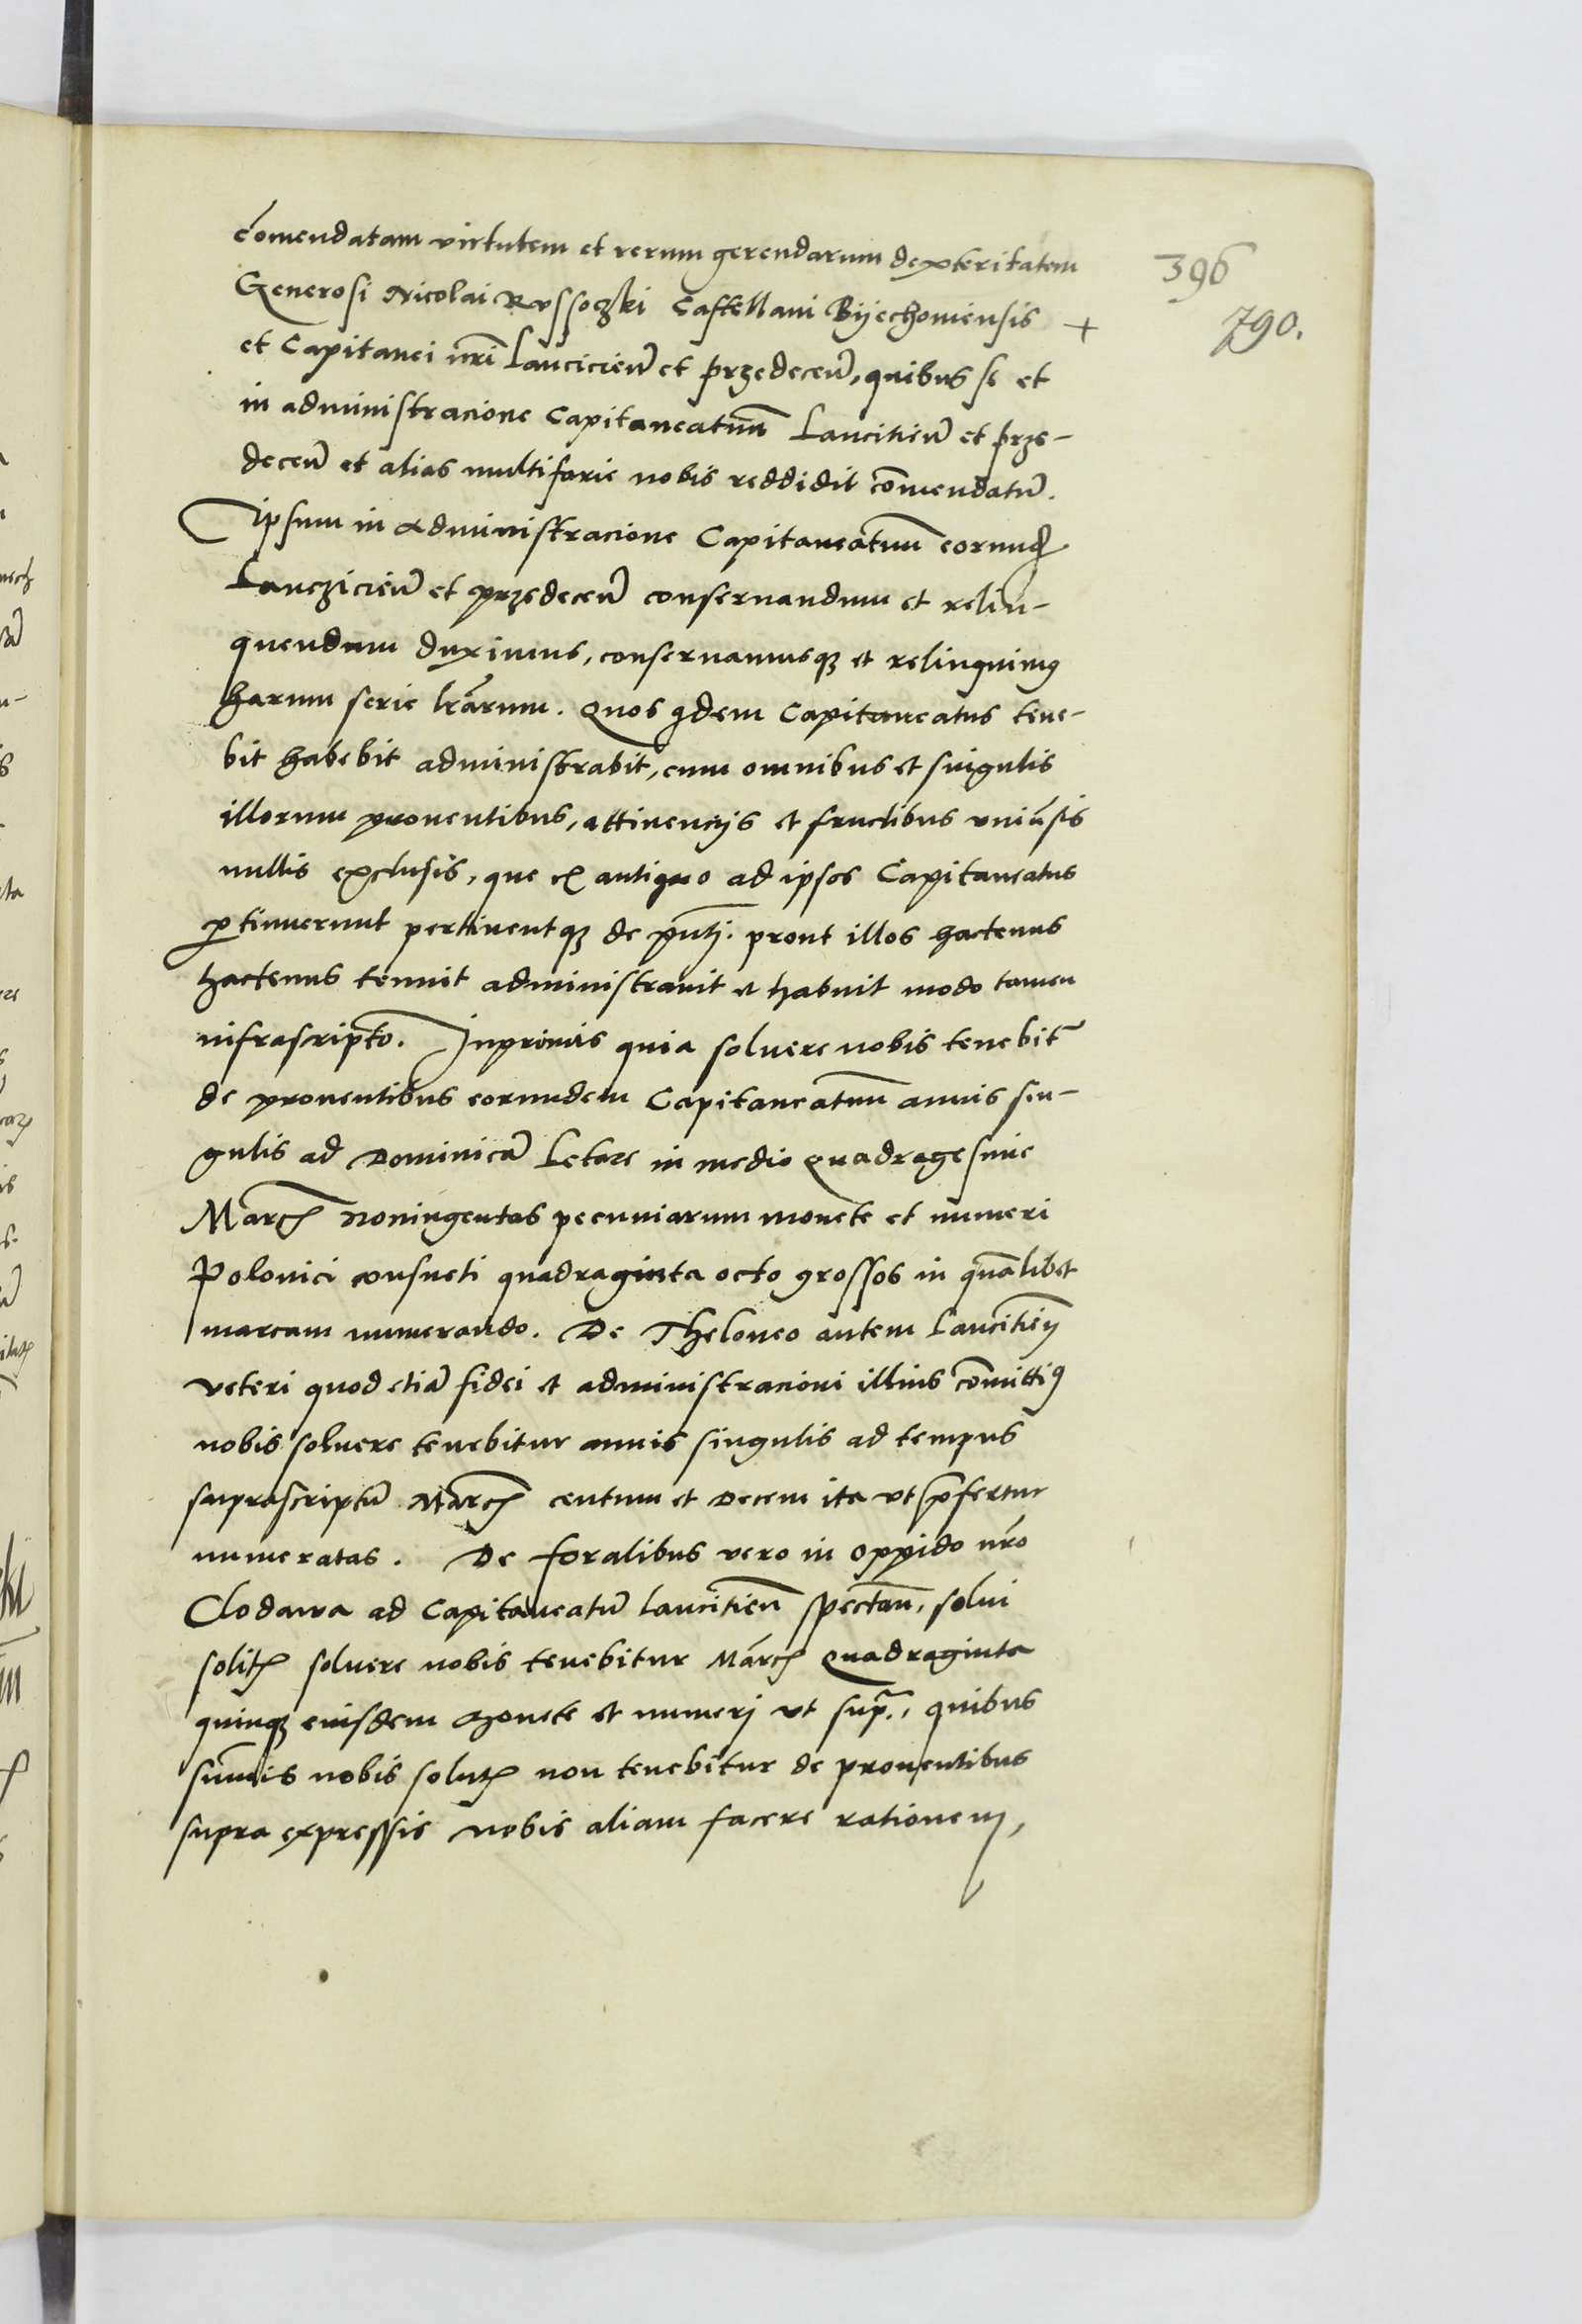 comendatam virtutem et rerum gerendarum dexteritatem
396
Generosi Nicolai Russoczki Castellani Byechoviensis +
790.
et Capitanei nri Lancicien et przedecen, quibus se et
in administracione Capitaneatuum Lancitien et prze-
decen et alias multifarie nobis reddidit comendatu.
Ipsum in administracione Capitaneatuum eorund
Lanczicien et przedecen conservandum et relin-
quendum duximus, conservamusq et relinquim9
harum serie lrarum. Quos qdem Capitaneatus tene-
bit habebit administrabit, cum omnibus et singulis
illorum proventibus, attinencijs et fructibus univsis
nullis exclusis, que ex antiquo ad ipsos Capitaneatus
ptinuerunt pertinentq de pnti. prout illos hactenus
hactenus tenuit administravit et habuit modo tamen
infrascripto. Inprimis quia solvere nobis tenebit
de proventibus eorundem Capitaneatuum annis sin-
gulis ad Dominica Letare in medio Quadragesime
Marcs noningentas pecuniarum monete et numeri
Polonici consueti quadraginta octo grossos in qualibet
marcam numerando. De Theloneo autem Lancitien
veteri quod etia fidei et administracioni illius comitti9
nobis solvere tenebitur annis singulis ad tempus
suprascriptu Marcs centum et Decem ita ut pfertur
numeratas. De foralibus vero in oppido nro
Clodawa ad Capitaneatu Lancitien spectan, solui
solits solvere nobis tenebitur Marcs Quadraginta
quinq eiusdem monete et numeri ut supra, quibus
sumis nobis soluts non tenebitur de proventibus
supra expressis nobis aliam facere rationem,